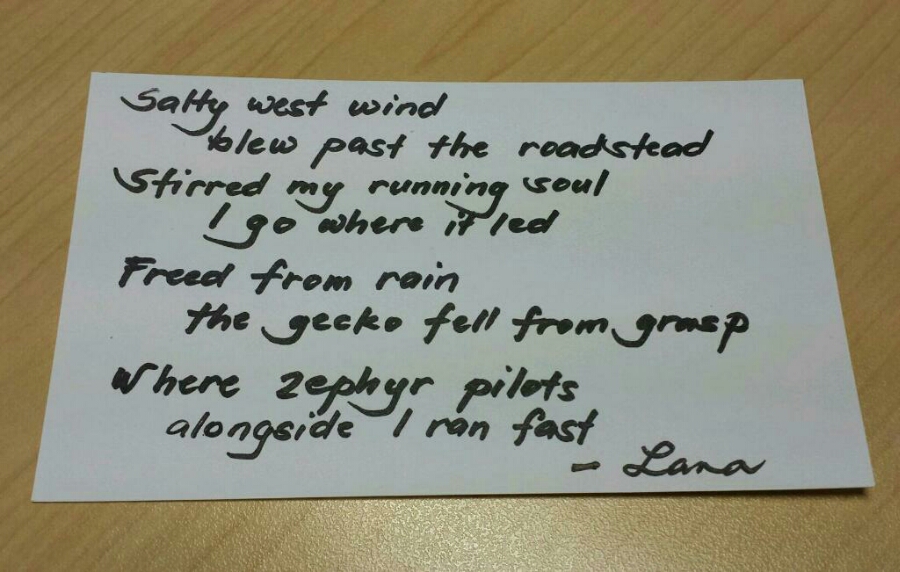 Salty west wind
blew past the roadstead
Stirred my running soul
I go where it led
Freed from rain
the gecko fell from grasp
Where zephyr pilots
alongside I ran fast
- Lana